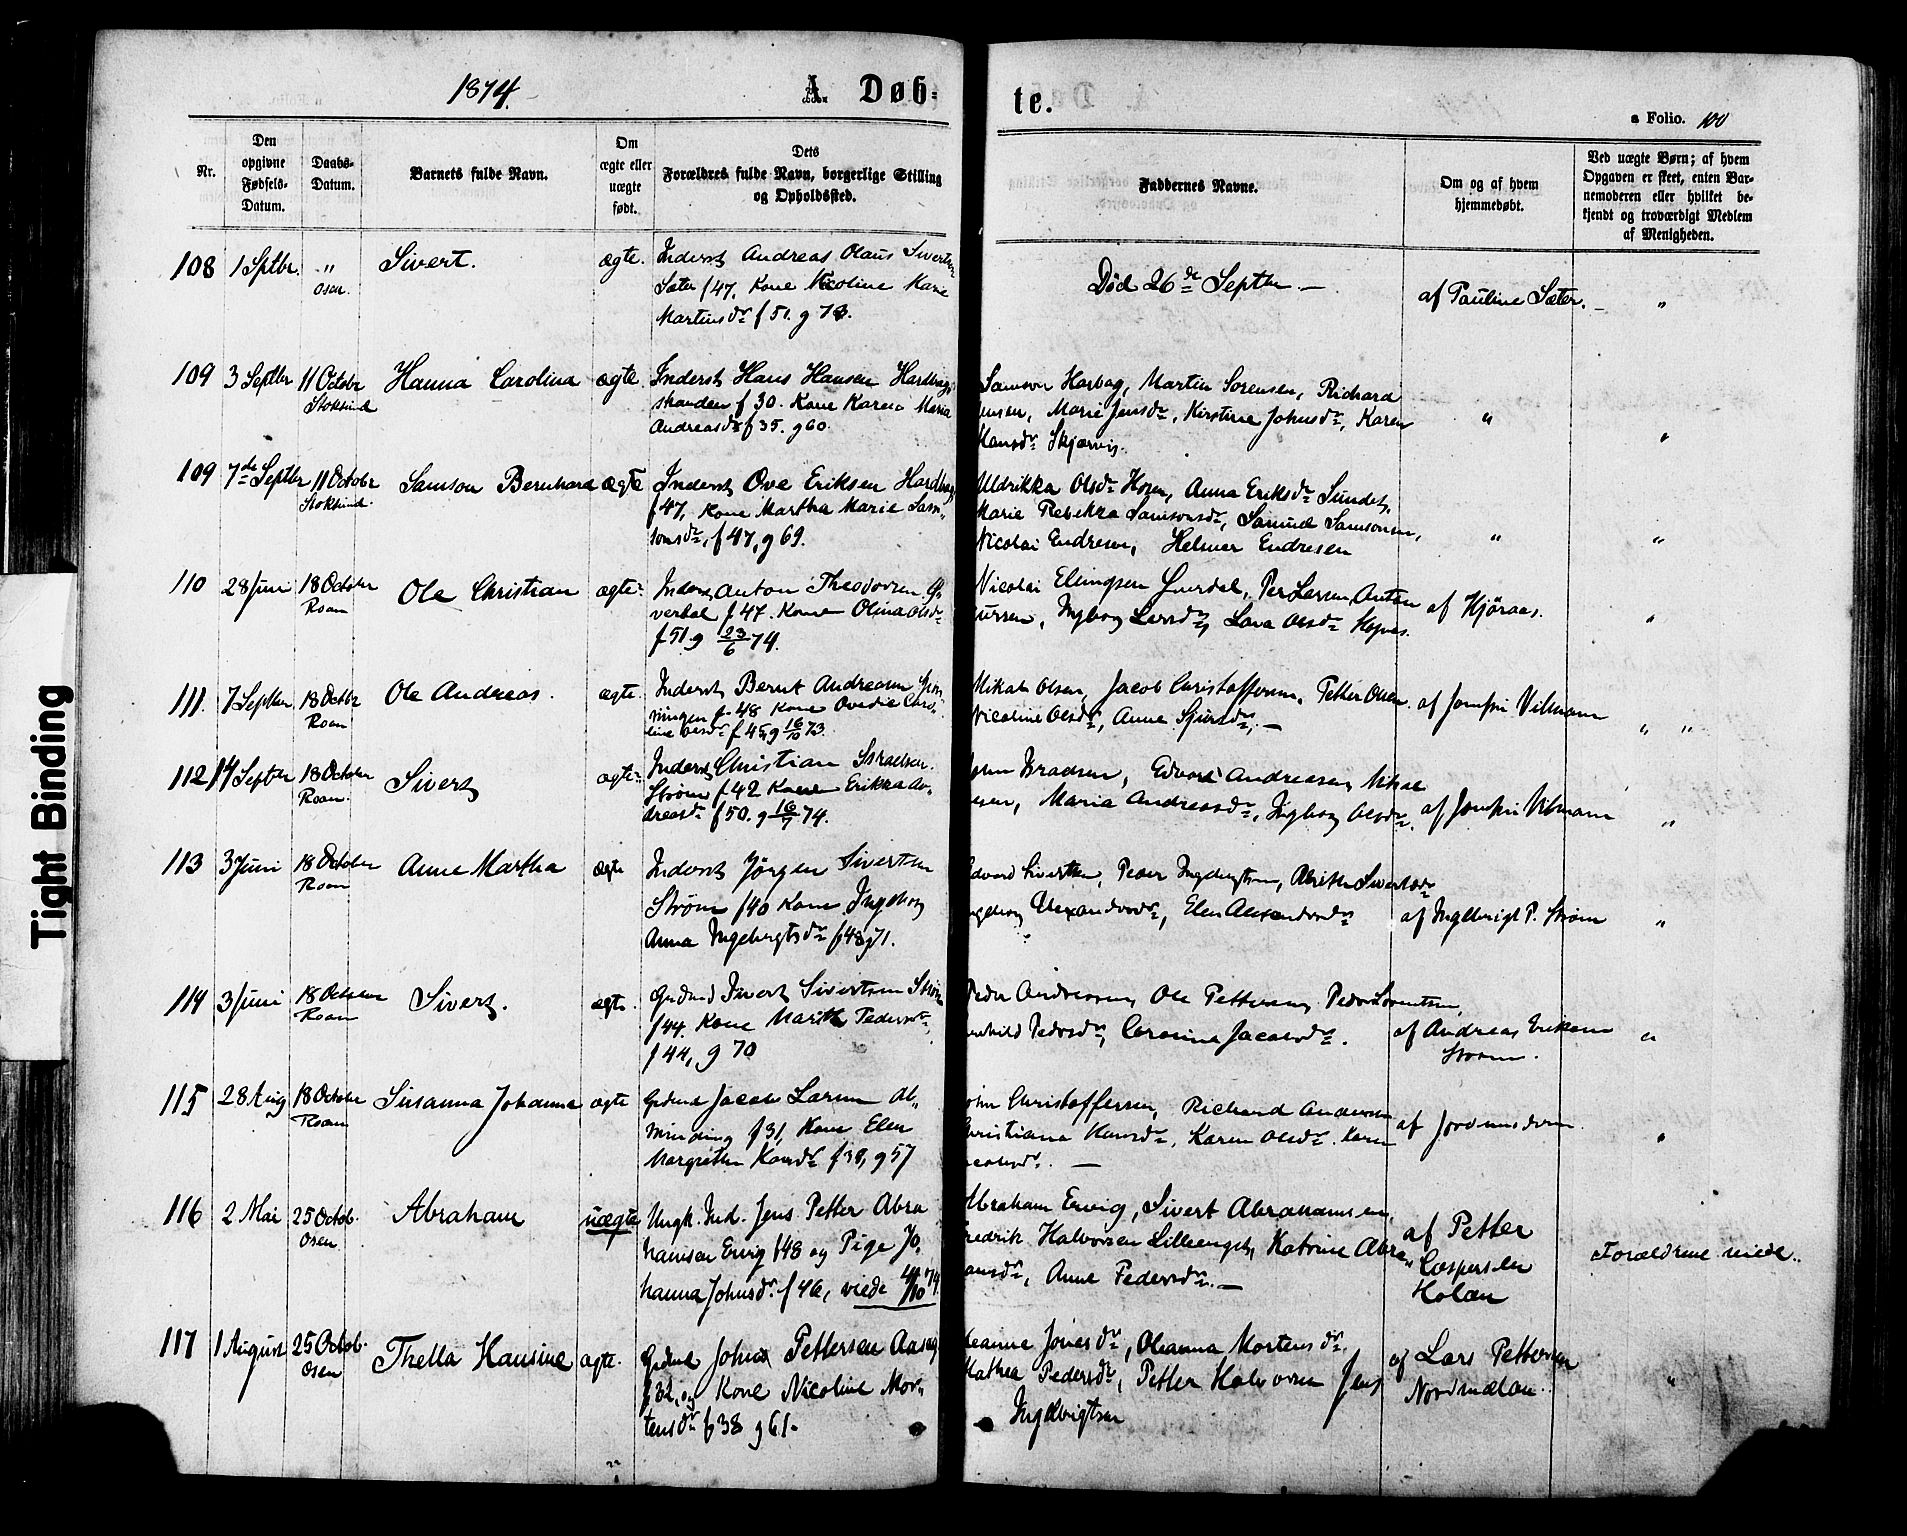 1874.
A. Døb-
te.
a Folio. 100
Nr.
Den opgivne Fødsels-Datum.
Daabs-Datum.
Barnets fulde Navn.
Om ægte eller uægte født.
Dets Forældres fulde Navn, borgerlige Stilling og Opholdssted.
Faddernes Navne.
Om og af hvem hjemmedøbt.
Ved uægte Børn; af hvem Opgaven er skeet, enten Barnemoderen eller hvilket bekjendt og troværdigt Medlem af Menigheden.
108 1 Septbr. " Osen. Sivert. ægte. Inderst Andreas Olaus Sivertsen
Sæter f 47. Kone Nicoline Marie
Martinsdr f 51. g 73.
Død 26de Septbr. — af Pauline Sæter. — "
109 3 Septbr 11 Octobr Stoksund Hanna Carolina ægte. Inderst Hans Hansen Hardbag,
stranden f 30. Kone Karen Maria
Andreasdr f 35. g 60.
Samson Harbag, Martin Sorensen, Richard
Jensen, Marie Jensdr, Kirstine Johnsdr, Karen
Hansdr Skjærvig. " "
109 7de Septbr 11 Octobr Stoksund. Samson Bernhard ægte Inderst Ove Eriksen Hardbag
f 47, Kone Martha Marie Sam-
sonsdr, f 47, g 69.
Uldrikka Olsdr Hosen, Anna Eriksdr Sundet,
Marie Rebekka Samsonsdr, Samuel Samsonsen,
Nicolai Endresen, Helmer Endresen " "
110 28 Juni 18 October Roan Ole Christian ægte. Inderst Anton Theodorsen
f 47. Kone Olina Olsdr
f 51. g 23/6 74.
Nicolai Ellingsen, Per Larsen, Anton
Ingborg Larsdr, Lava Olsdr af Kjøraas. "
111. 7 Septber 18 Octbr Roan Ole Andreas. ægte. Inderst Bernt Andreasen
f. 48 Kone Ovedie Caro-
line Olsdr f 45, g 16/10 73.
Mikal Olsen, Jacob Christoffersen, Petter Olsen.
Nicoline Olsdr, Anne Sjursdr. — af Jomfru Vilmann " "
112 14 Septber 18 October Roan. Sivert ægte. Inderst Christian Israelsen
Strøm f 42 Kone Erikka An-
dreasdr f 50. g 16/7 74.
Edvard Andreasen, Mikal
Maria Andreasdr, Ingborg Olsdr. af Jomfru Vilmann "
113 3 Juni 18 October Roan Anne Martha ægte Inderst Jørgen Sivertsen
Strøm f 40 Kone Ingeborg
Anna Ingebrigtsdr f 48 g 71.
Edvard Sivertsen, Peder Ingebrigtsen, Sivertsdr
Ingeborg Alexandersdr, Elen Alexandersdr af Ingebrigt P. Strøm "
114 3 Juni 18 October Roan Sivert. ægte. Sivert Sivertsen Strøm
f 44. Kone Marith Pedersdr
f 44, g 70
Peder Andreasen, Ole Pettersen, Peder Lorentsen,
Pedersdr, Jacobsdr. af Andreas Eriksen
Strøm. "
115 28 Aug 18 October Roan Susanna Johanna ægte Jacob Larsen Al-
minding f 31, Kone Elen
Margrethe f 38, g 57
John Christoffersen, Richard Andersen
Christiana Hansdr, Karen Olsdr. Karen
Jacobsdr. — af Jordmoderen. "
116 2 Mai 25 Octob. Osen Abraham uægte Ungk. Ind. Jens Petter Abra
hamsen Ervig f 48 og Pige Jo,
hanna Johnsdr. f 46, viede 4/10 74.
Abraham Ervig, Sivert Abrahamsen,
Fredrik Halvorsen Lilleenget, Katrine Abra-
hamsdr, Anne Pedersdr. — af Petter
Caspersen
Holan Forældrene viede.
117 1 August 25 Octob. Osen Thella Hansine ægte. John Pettersen Aaseg
f 32, og Kone Nicoline Mor-
tensdr f 38 g 61.
Leanne Jonesdr, Oleanna Mortensdr.
Mathea Pedersdr, Petter Halvorsen Jens
Ingebrigtsen af Lars Pettersen
Nordmelan. "
Tight Binding